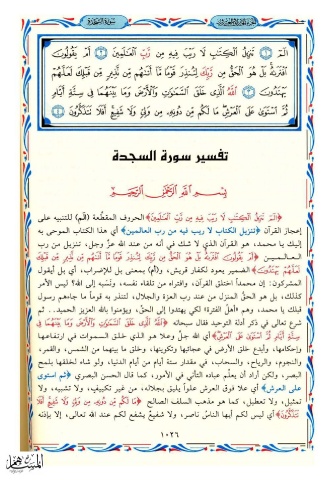 سورة السجدة
الٓمٓ ۝ تَنزِيلُ ٱلْكِتَٰبِ لَا رَيْبَ فِيهِ مِن رَّبِّ ٱلْعَٰلَمِينَ ۝ أَمْ يَقُولُونَ
ٱفْتَرَىٰهُ بَلْ هُوَ ٱلْحَقُّ مِن رَّبِّكَ لِتُنذِرَ قَوْمًا مَّآ أَتَىٰهُم مِّن نَّذِيرٍ مِّن قَبْلِكَ لَعَلَّهُمْ
يَهْتَدُونَ ۝ ٱللَّهُ ٱلَّذِى خَلَقَ ٱلسَّمَٰوَٰتِ وَٱلْأَرْضَ وَمَا بَيْنَهُمَا فِى سِتَّةِ أَيَّامٍ
ثُمَّ ٱسْتَوَىٰ عَلَى ٱلْعَرْشِ مَا لَكُم مِّن دُونِهِۦ مِن وَلِىٍّ وَلَا شَفِيعٍ أَفَلَا تَتَذَكَّرُونَ ۝
تفسير سورة السجدة
بسم الله الرحمن الرحيم
﴿الٓمٓ تَنزِيلُ ٱلْكِتَٰبِ لَا رَيْبَ فِيهِ مِن رَّبِّ ٱلْعَٰلَمِينَ﴾ الحروف المقطّعة (الم) للتنبيه على
إعجاز القرآن ﴿تنزيل الكتاب لا ريب فيه من رب العالمين﴾ أي هذا الكتاب الموحى به
إليك يا محمد، هو القرآن الذي لا شك في أنه من عند الله عزَّ وجل، تنزيل من رب
العالمين ﴿أَمْ يَقُولُونَ ٱفْتَرَىٰهُ بَلْ هُوَ ٱلْحَقُّ مِن رَّبِّكَ لِتُنذِرَ قَوْمًا مَّآ أَتَىٰهُم مِّن نَّذِيرٍ مِّن قَبْلِكَ
لَعَلَّهُمْ يَهْتَدُونَ﴾ الضمير يعود لكفار قريش، و(أم) بمعنى بل للإضراب، أي بل أيقول
المشركون: إن محمداً اختلق القرآن، وافتراه من تلقاء نفسه، ونَسَبه إلى الله؟ ليس الأمر
كذلك، بل هو الحقُّ المنزل من عند رب العزة والجلال، لتنذر به قوماً ما جاءهم رسول
قبلك يا محمد، وهم «أهلُ الفترة» لكي يهتدوا إلى الحقِّ، ويؤمنوا بالله العزيز الحميد.. ثم
شرع تعالى في ذكر أدلة التوحيد فقال سبحانه ﴿ٱللَّهُ ٱلَّذِى خَلَقَ ٱلسَّمَٰوَٰتِ وَٱلْأَرْضَ وَمَا بَيْنَهُمَا فِى
سِتَّةِ أَيَّامٍ ثُمَّ ٱسْتَوَىٰ عَلَى ٱلْعَرْشِ﴾ أي الله جلَّ وعلا هو الذي خلق السموات في ارتفاعها
وإحكامها، وأبدع خلق الأرض في عجائبها وتكوينها، وخلق ما بينهما من الشمس، والقمر،
والنجوم، والرياح، والسحاب، في مقدار ستة أيام من أيام الدنيا، ولو شاء لخلقها بلمح
البصر، ولكن أراد أن يعلّم عباده التأني في الأمور، كما قال الحسن البصري ﴿ثم استوى
على العرش﴾ أي علا فوق العرش علواً يليق بجلاله، من غير تكييفٍ، ولا تشبيه، ولا
تمثيل، ولا تعطيل، كما هو مذهب السلف الصالح ﴿مَا لَكُم مِّن دُونِهِۦ مِن وَلِىٍّ وَلَا شَفِيعٍ أَفَلَا
تَتَذَكَّرُونَ﴾ أي ليس لكم أيها الناس ناصر، ولا شفيعٌ يشفع لكم عند الله تعالى، إلا بإذنه
١٠٢٦